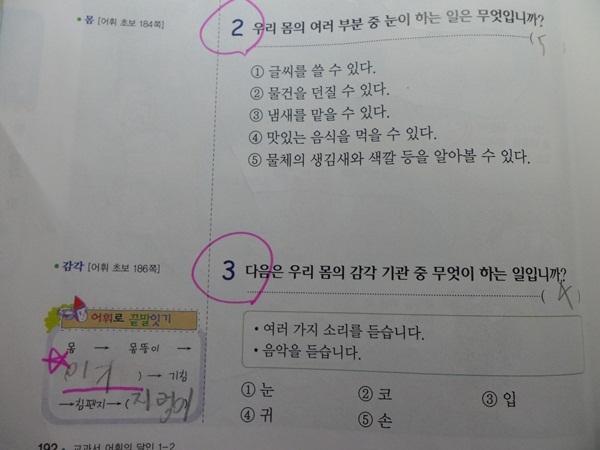 • 몸 [어휘 초보 184쪽]
2 우리 몸의 여러 부분 중 눈이 하는 일은 무엇입니까?
( 5
① 글씨를 쓸 수 있다.
② 물건을 던질 수 있다.
③ 냄새를 맡을 수 있다.
④ 맛있는 음식을 먹을 수 있다.
⑤ 물체의 생김새와 색깔 등을 알아볼 수 있다.
• 감각 [어휘 초보 186쪽]
3 다음은 우리 몸의 감각 기관 중 무엇이 하는 일입니까?
( 4 )
• 여러 가지 소리를 듣습니다.
• 음악을 듣습니다.
① 눈 ② 코 ③ 입
④ 귀 ⑤ 손
어휘로 끝말잇기
몸 → 몽뚱이 →
) → 기침
→침팬지→( 지렁이
192 • 교과서 어휘의 달인 1-2